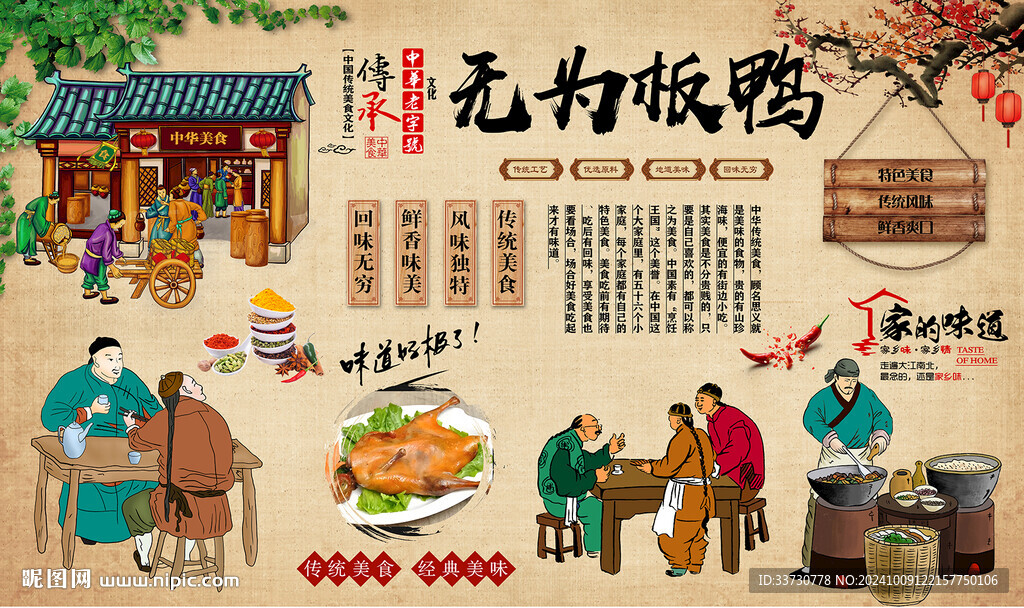 无为板鸭
中華老字號
文化
傳承
【中国传统美食文化】
中華美食
中华美食
传统工艺
优选原料
地道美味
回味无穷
特色美食
传统风味
鲜香爽口
传统美食
风味独特
鲜香味美
回味无穷
中华传统美食，顾名思义就
是美味的食物，贵的有山珍
海味，便宜的有街边小吃。
其实美食是不分贵贱的，只
要是自己喜欢的，都可以称
之为美食。中国素有“烹饪
王国”这个美誉。在中国这
个大家庭里，有五十六个小
家庭，每个家庭都有自己的
特色美食。美食吃前有期待
、吃后有回味，享受美食也
要看场合，场合好美食吃起
来才有味道。
味道好极了!
家的味道
家乡味·家乡情
TASTE
OF HOME
走遍大江南北，
最念的，还是家乡味...
传统美食
经典美味
昵图网 www.nipic.com
ID:33730778 NO:20241009122157750106